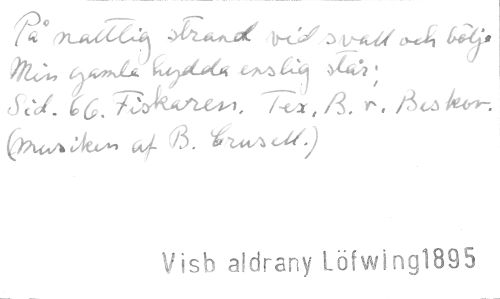 På nattlig strand vid svall och bölja
Min gamla hydda enslig står;
Sid. 66. Fiskaren. Tex. B. v. Beskow.
(musiken af B. Crusell.)
Visb aldrany Löfwing1895